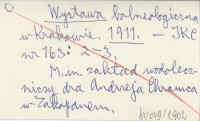 Wystawa balneologiczna
w Krakowie. 1911. — IKC
nr 163: 2-3.
M.in. zakład wodolecz-
niczy dra Andrzeja Chramca
w Zakopanem.